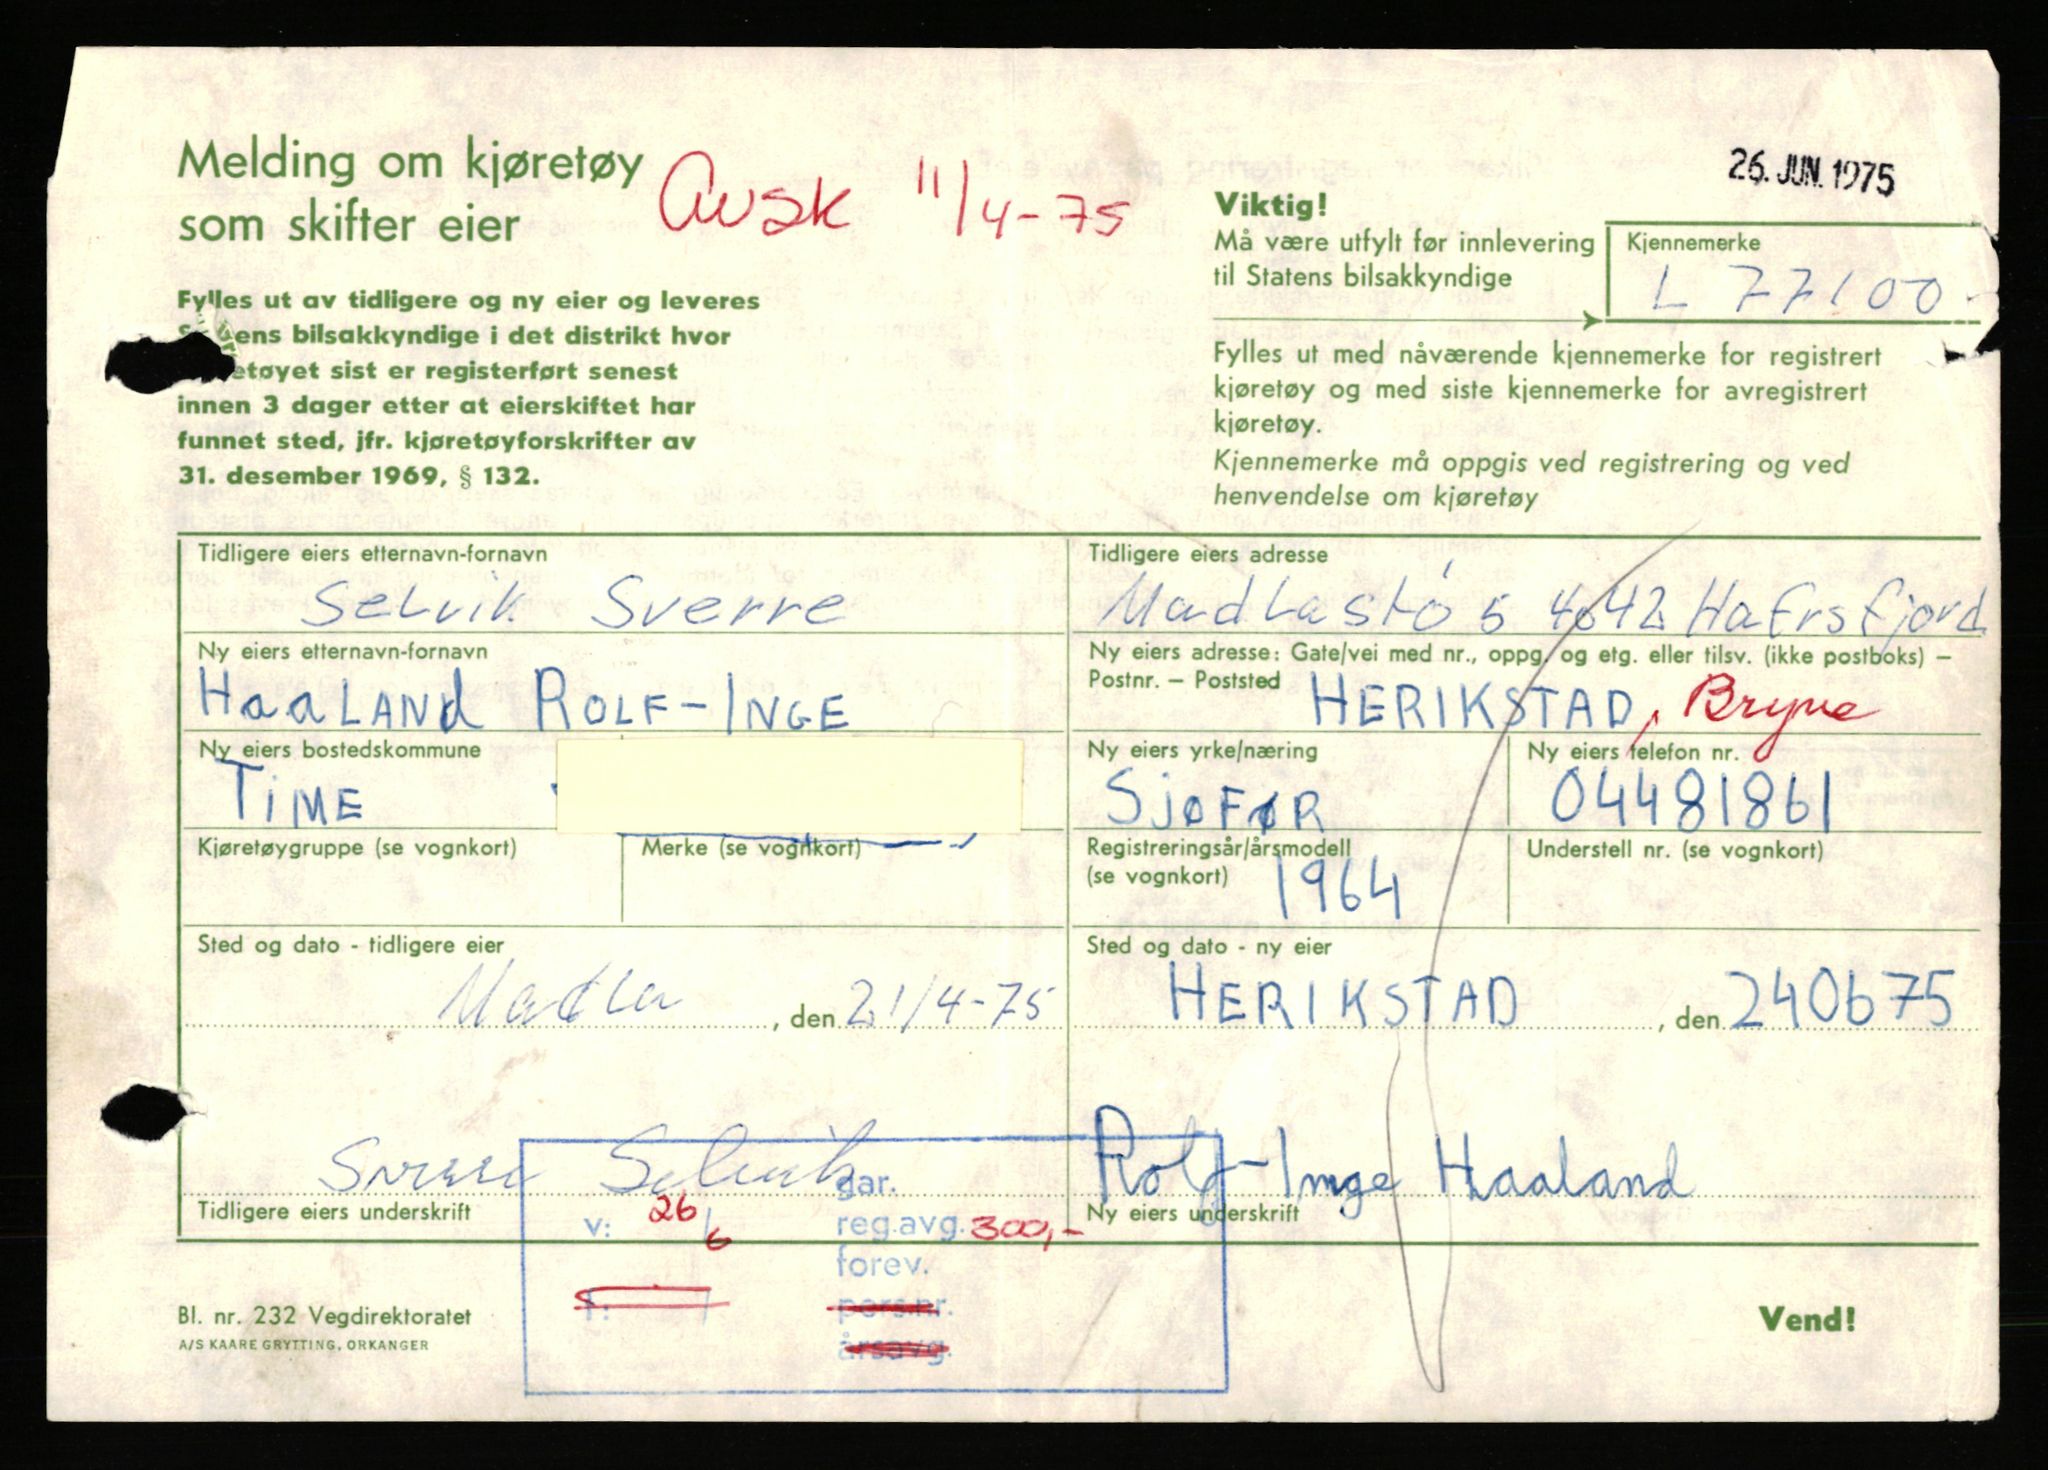 Melding om kjøretøy
som skifter eier
Avsk 11/4-75
26. JUN. 1975
Viktig!
Må være utfylt før innlevering
til Statens bilsakkyndige
Kjennemerke
L 77100
Fylles ut av tidligere og ny eier og leveres
ens bilsakkyndige i det distrikt hvor
etøyet sist er registerført senest
innen 3 dager etter at eierskiftet har
funnet sted, jfr. kjøretøyforskrifter av
31. desember 1969, § 132.
Fylles ut med nåværende kjennemerke for registrert
kjøretøy og med siste kjennemerke for avregistrert
kjøretøy.
Kjennemerke må oppgis ved registrering og ved
henvendelse om kjøretøy
Tidligere eiers etternavn-fornavn
Selvik Sverre
Tidligere eiers adresse
Madlastö 5 4042 Hafrsfjord
Ny eiers etternavn-fornavn
HaaLANd ROLF-INGE
Ny eiers adresse: Gate/vei med nr., oppg. og etg. eller tilsv. (ikke postboks) –
Postnr. – Poststed
HERIKSTAD, Bryne
Ny eiers bostedskommune
TIME
Ny eiers yrke/næring
SJØFØR
Ny eiers telefon nr.
04481861
Kjøretøygruppe (se vognkort)
Merke (se vognkort)
Registreringsår/årsmodell
(se vognkort)
1964
Understell nr. (se vognkort)
Sted og dato - tidligere eier
Madla, den 21/4-75
Sted og dato - ny eier
HERIKSTAD, den 240675
Sverre Selvik
Tidligere eiers underskrift
Rolf-Inge Haaland
Ny eiers underskrift
gar.
v: 26/6
reg.avg. 300,-
forev.
f: /
pers.nr.
årsavg.
Bl. nr. 232 Vegdirektoratet
A/S KAARE GRYTTING, ORKANGER
Vend!